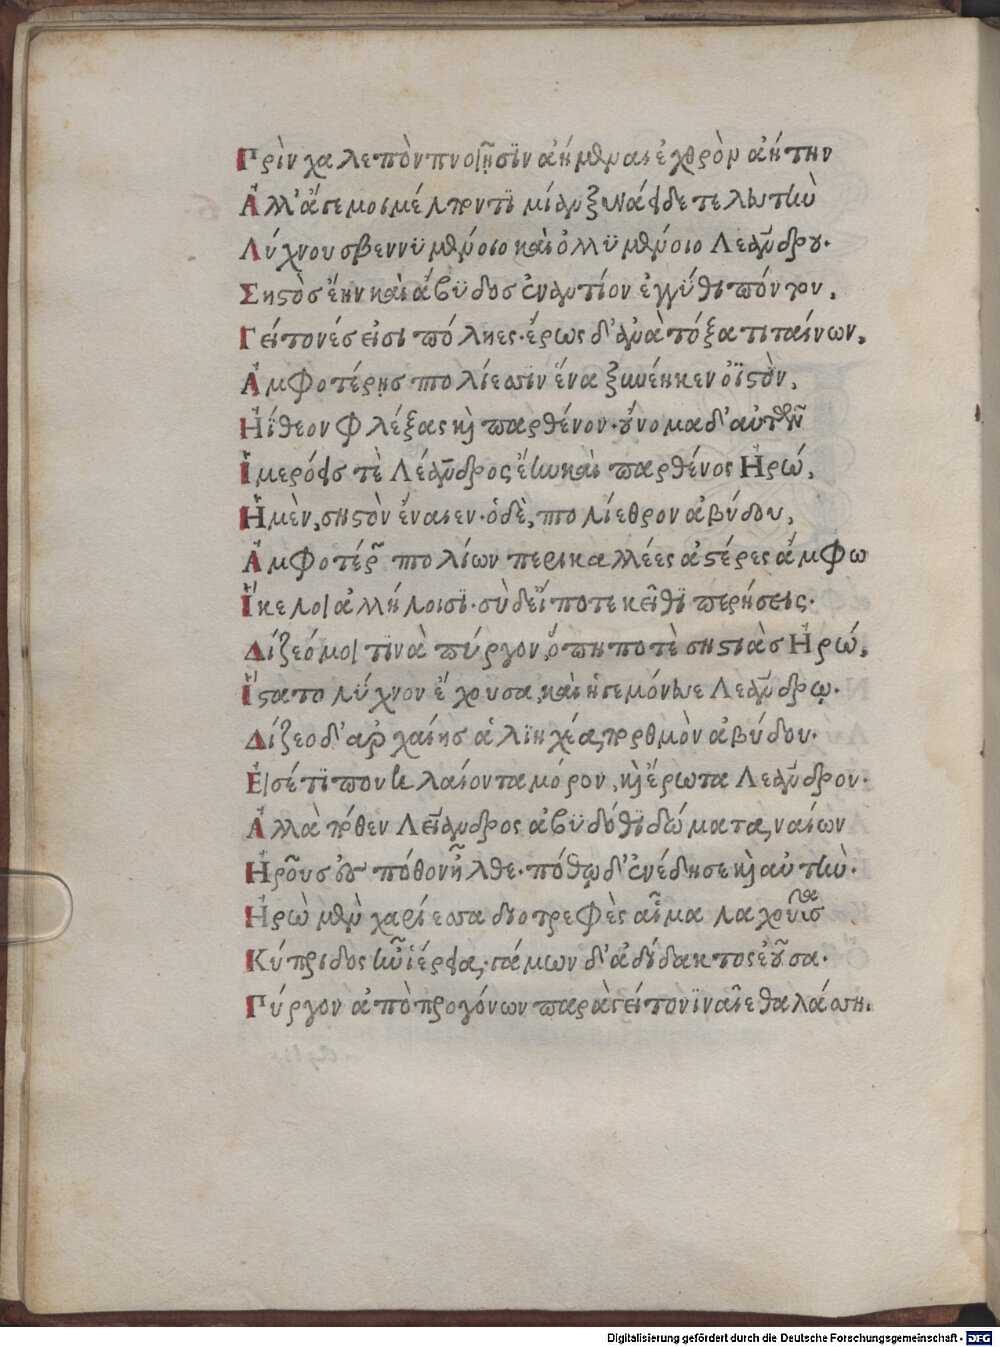 Πρὶν χαλεπὸν πνοιῇσιν ἀήμεναι ἐχθρὸν ἀήτην
Ἀλλ' ἄγε μοι μέλποντι μίαν ξυνάειδε τελευτὴν
Λύχνου σβεννϋμένοιο καὶ ὀλλϋμένοιο Λεάνδρου.
Σηστὸσ ἔην καὶ ἄβϋδοσ ἐναντίον ἐγγύθι πόντου.
Γείτονές εἰσι πόληες. ἔρως δ' ἀνὰ τόξα τιταίνων.
Ἀμφοτέρῃσ πολίεσσιν ἕνα ξυνέηκεν ὀϊστὸν.
Ἠΐθεον φλέξας καὶ παρθένον. οὔνομα δ' αὐτῶν
Ἱμερόεις τὲ Λέανδρος ἔην καὶ παρθένος Ἡρώ.
Ἡ μὲν, σηστὸν ἔναιεν. ὁ δὲ, πτολίεθρον ἀβύδου.
Ἀμφοτέρων πολίων περικαλλέες ἀστέρες ἄμφω
Ἴκελοι ἀλλήλοισϊ. σὺ δ' εἴ ποτε κεῖθϊ περήσεις.
Δίζεό μοι τϊνὰ πύργον, ὅπη ποτὲ σηστιὰς Ἡρώ.
Ἵστατο λύχνον ἔχουσα, καὶ ἡγεμόνευε Λεάνδρῳ.
Δίζεο δ' ἀρχαίησ ἁλϊηχέα, πορθμὸν ἀβύδου.
Εἰσέτϊ που κλαίοντα μόρον, καὶ ἔρωτα Λεάνδρον.
Ἀλλὰ πόθεν Λείανδρος ἀβϋδόθϊ δώματα, ναίων
Ἡροῦς ἐς πόθον ἦλθε. πόθῳ δ' ἐνέδησε καὶ αὐτὴν.
Ἡρὼ μὲν χαρίεσσα διοτρεφὲς αἷμα λαχοῦσα
Κύπριδος ἦν ἱέρεια, γάμων δ' ἀδίδακτος ἐοῦσα.
Πύργον ἀπὸ προγόνων παρὰ γείτονϊ ναῖε θαλάσσῃ.
Digitalisierung gefördert durch die Deutsche Forschungsgemeinschaft - DFG